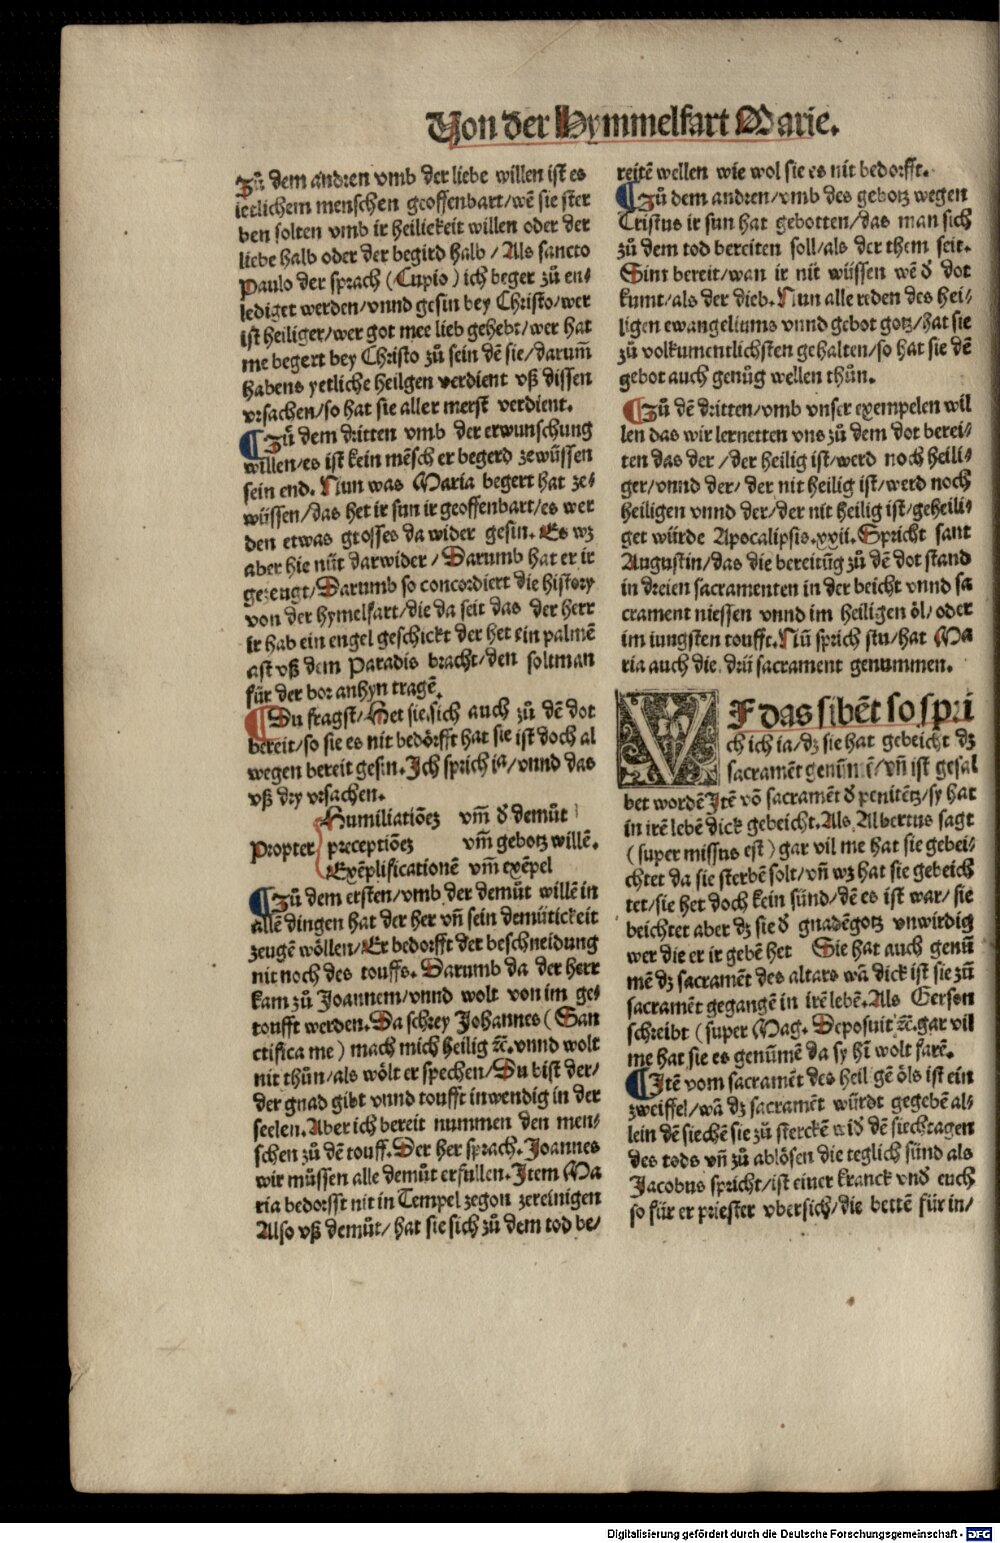 Von der Hymmelfart Marie.
Zů dem andren vmb der liebe willen ist es
ietlichem menschen geoffenbart/wē sie ster
ben solten vmb ir heilickeit willen oder der
liebe halb oder der begird halb/Als sancto
Paulo der sprach (Cupio) ich beger zů en⸗
lediget werden/vnnd gesin bey Christo/wer
ist heiliger/wer got mee lieb gehebt/wer hat
me begert bey Christo zů sein dē sie/darum̄
habens yetliche heilgen verdient vß dissen
vrsachen/so hat sie aller merst verdient.
¶Zů dem dritten vmb der erwunschung
willen/es ist kein mēsch er begerd zewüssen
sein end. Nun was Maria begert hat ze⸗
wüssen/das het ir sun ir geoffenbart/es wer
den etwas grosses da wider gesin. Es wz
aber hie nüt darwider/Darumb hat er ir
gezeugt/Darumb so concordiert die history
von der hymelfart/die da seit das der herr
ir hab ein engel geschickt der het ein palmē
ast vß dem Paradis bracht/den soltman
für der bor anhyn tragē.
¶Du fragst/Het sie sich auch zů dē dot
bereit/so sie es nit bedörfft hat sie ist doch al
wegen bereit gesin. Ich sprich ia/vnnd das
vß dry vrsachen.
Humiliatiōez vm̄ ď demůt
Propter preceptiōez vm̄ gebotz willē.
Exēplificationē vm̄ exēpel
¶Zů dem ersten/vmb der demůt willē in
allē dingen hat der her vn̄ sein demütickeit
zeugē wöllen/Er bedorfft der beschneidung
nit noch des touffs. Darumb da der herr
kam zů Joannem/vnnd wolt von im ge⸗
toufft werden. Da schrey Johannes (San
ctifica me) mach mich heilig ⁊c. vnnd wolt
nit thůn/als wölt er spechen/Du bist der/
der gnad gibt vnnd toufft inwendig in der
seelen. Aber ich bereit nummen den men⸗
schen zů dē touff. Der her sprach. Joannes
wir müssen alle demůt erfullen. Item Ma
ria bedorfft nit in Tempel zegon zereinigen
Also vß demůt/hat sie sich zů dem tod be/
reitē wellen wie wol sie es nit bedorfft.
¶Zů dem andren/vmb des gebotz wegen
Cristus ir sun hat gebotten/das man sich
zů dem tod bereiten soll/als der them seit.
Sint bereit/wan ir nit wüssen wē ď dot
kumt/als der dieb. Nun alle reden des hei/
ligen ewangeliums vnnd gebot gotz/hat sie
zů volkumentlichsten gehalten/so hat sie dē
gebot auch genůg wellen thůn.
¶Zů dē dritten/vmb vnser exempelen wil
len das wir lernetten vns zů dem dot berei⸗
ten das der/der heilig ist/werd noch heili⸗
ger/vnnd der/der nit heilig ist/werd noch
heiligen vnnd der/der nit heilig ist/geheili⸗
get würde Apocalipsis.xxii. Spricht sant
Augustin/das die bereitūg zů dē dot stand
in dreien sacramenten in der beicht vnnd sa
crament niessen vnnd im heiligen öl/oder
im iungsten toufft. Nū sprich stu/hat Ma
ria auch die drü sacrament genummen.
VF das sibēt so spri
ch ich ia/dz sie hat gebeicht dz
sacramēt genūmē/vn̄ ist gesal
bet wordē Itē vō sacramēt ď penitētz/sy hat
in irē lebē dick gebeicht. Als Albertus sagt
(super missus est) gar vil me hat sie gebei⸗
chtet da sie sterbē solt/vn̄ wz hat sie gebeich
tet/sie het doch kein sünd/dē es ist war/sie
beichtet aber dz sie ď gnadēgotz vnwirdig
wer die er ir gebē het Sie hat auch genū
mē dz sacramēt des altars wā dick ist sie zū
sacramēt gegangē in irē lebē. Als Gerson
schreibt (super Mag. Deposuit ⁊c. gar vil
me hat sie es genūmē da sy hī wolt farē.
¶Itē vom sacramēt des heil gē öls ist ein
zweiffel/wā dz sacramēt würdt gegebē al⸗
lein dē siechē sie zů sterckē wiď dē siechtagen
des tods vn̄ zů ablösen die teglich sünd als
Jacobus spricht/ist einer kranck vnď euch
so für er priester vber sich/die bettē für in/
Digitalisierung gefördert durch die Deutsche Forschungsgemeinschaft - DFG